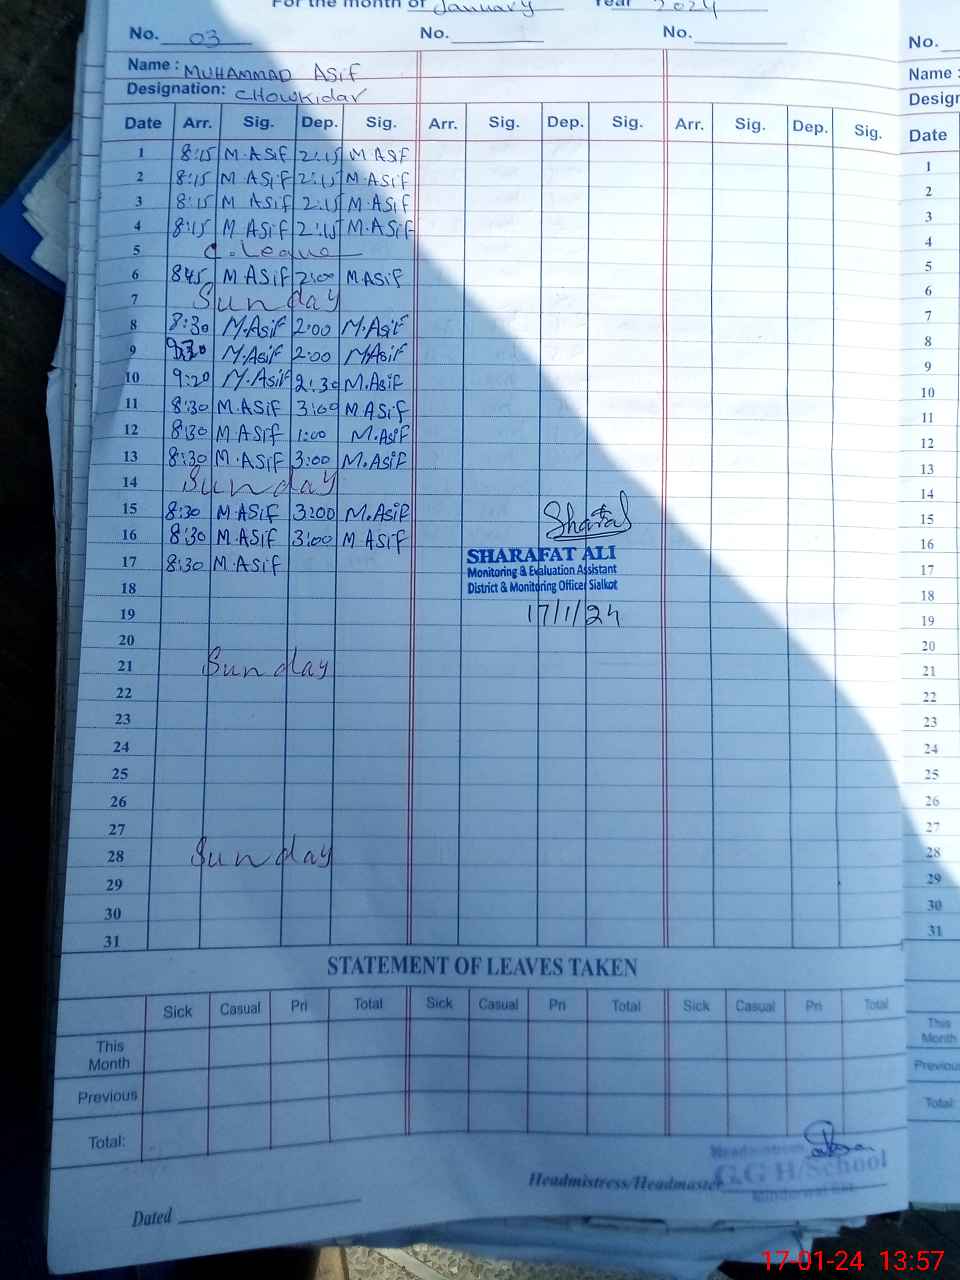 For the month of January Year 2024
No. 03 No. No. No.
Name : MUHAMMAD ASIF Name :
Designation: CHOWKIDAR
Date Arr. Sig. Dep. Sig. Arr. Sig. Dep. Sig. Arr. Sig. Dep. Sig. Date
1 8:15 M.ASIF 2:15 M ASF 1
2 8:15 M ASIF 2:15 M.ASIF 2
3 8:15 M ASIF 2:15 M.ASIF 3
4 8:15 M ASIF 2:15 M.ASIF 4
5 C.Leave 5
6 8:45 M ASIF 2:00 M ASIF 6
7 Sunday 7
8 8:30 M.Asif 2:00 M.Asif 8
9 M.Asif 2:00 M.Asif 9
10 9:20 M.Asif 2:30 M.Asif 10
11 8:30 M.ASIF 3:00 M ASIF 11
12 8:30 M ASIF 1:00 M.ASIF 12
13 8:30 M.ASIF 3:00 M.ASIF 13
14 Sunday 14
15 8:30 M ASIF 3:00 M.ASIF 15
16 8:30 M ASIF 3:00 M ASIF 16
17 8:30 M.ASIF 17
Sharafat
SHARAFAT ALI
Monitoring & Evaluation Assistant
District & Monitoring Officer Sialkot
17/1/24
18 18
19 19
20 20
21 Sunday 21
22 22
23 23
24 24
25 25
26 26
27 27
28 Sunday 28
29 29
30 30
31 31
STATEMENT OF LEAVES TAKEN
Sick Casual Pri Total Sick Casual Pri Total Sick Casual Pri Total
This Month This Month
Previous Previous
Total: Total:
Headmistress
Headmistress/Headmaster G.G H/School
Dated
17-01-24 13:57